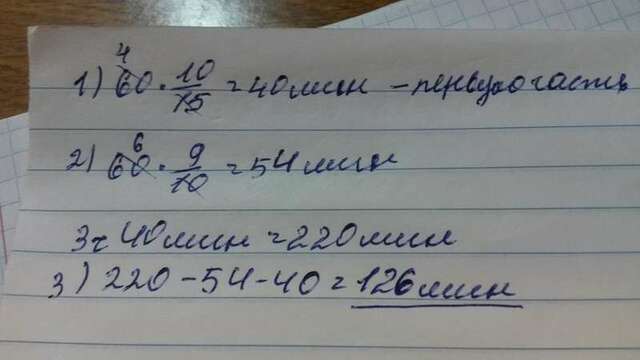 1) 60 · 10/15 = 40 мин – первую часть
4
2) 60 · 9/10 = 54 мин
6
3ч 40 мин = 220 мин
3) 220 – 54 – 40 = 126 мин